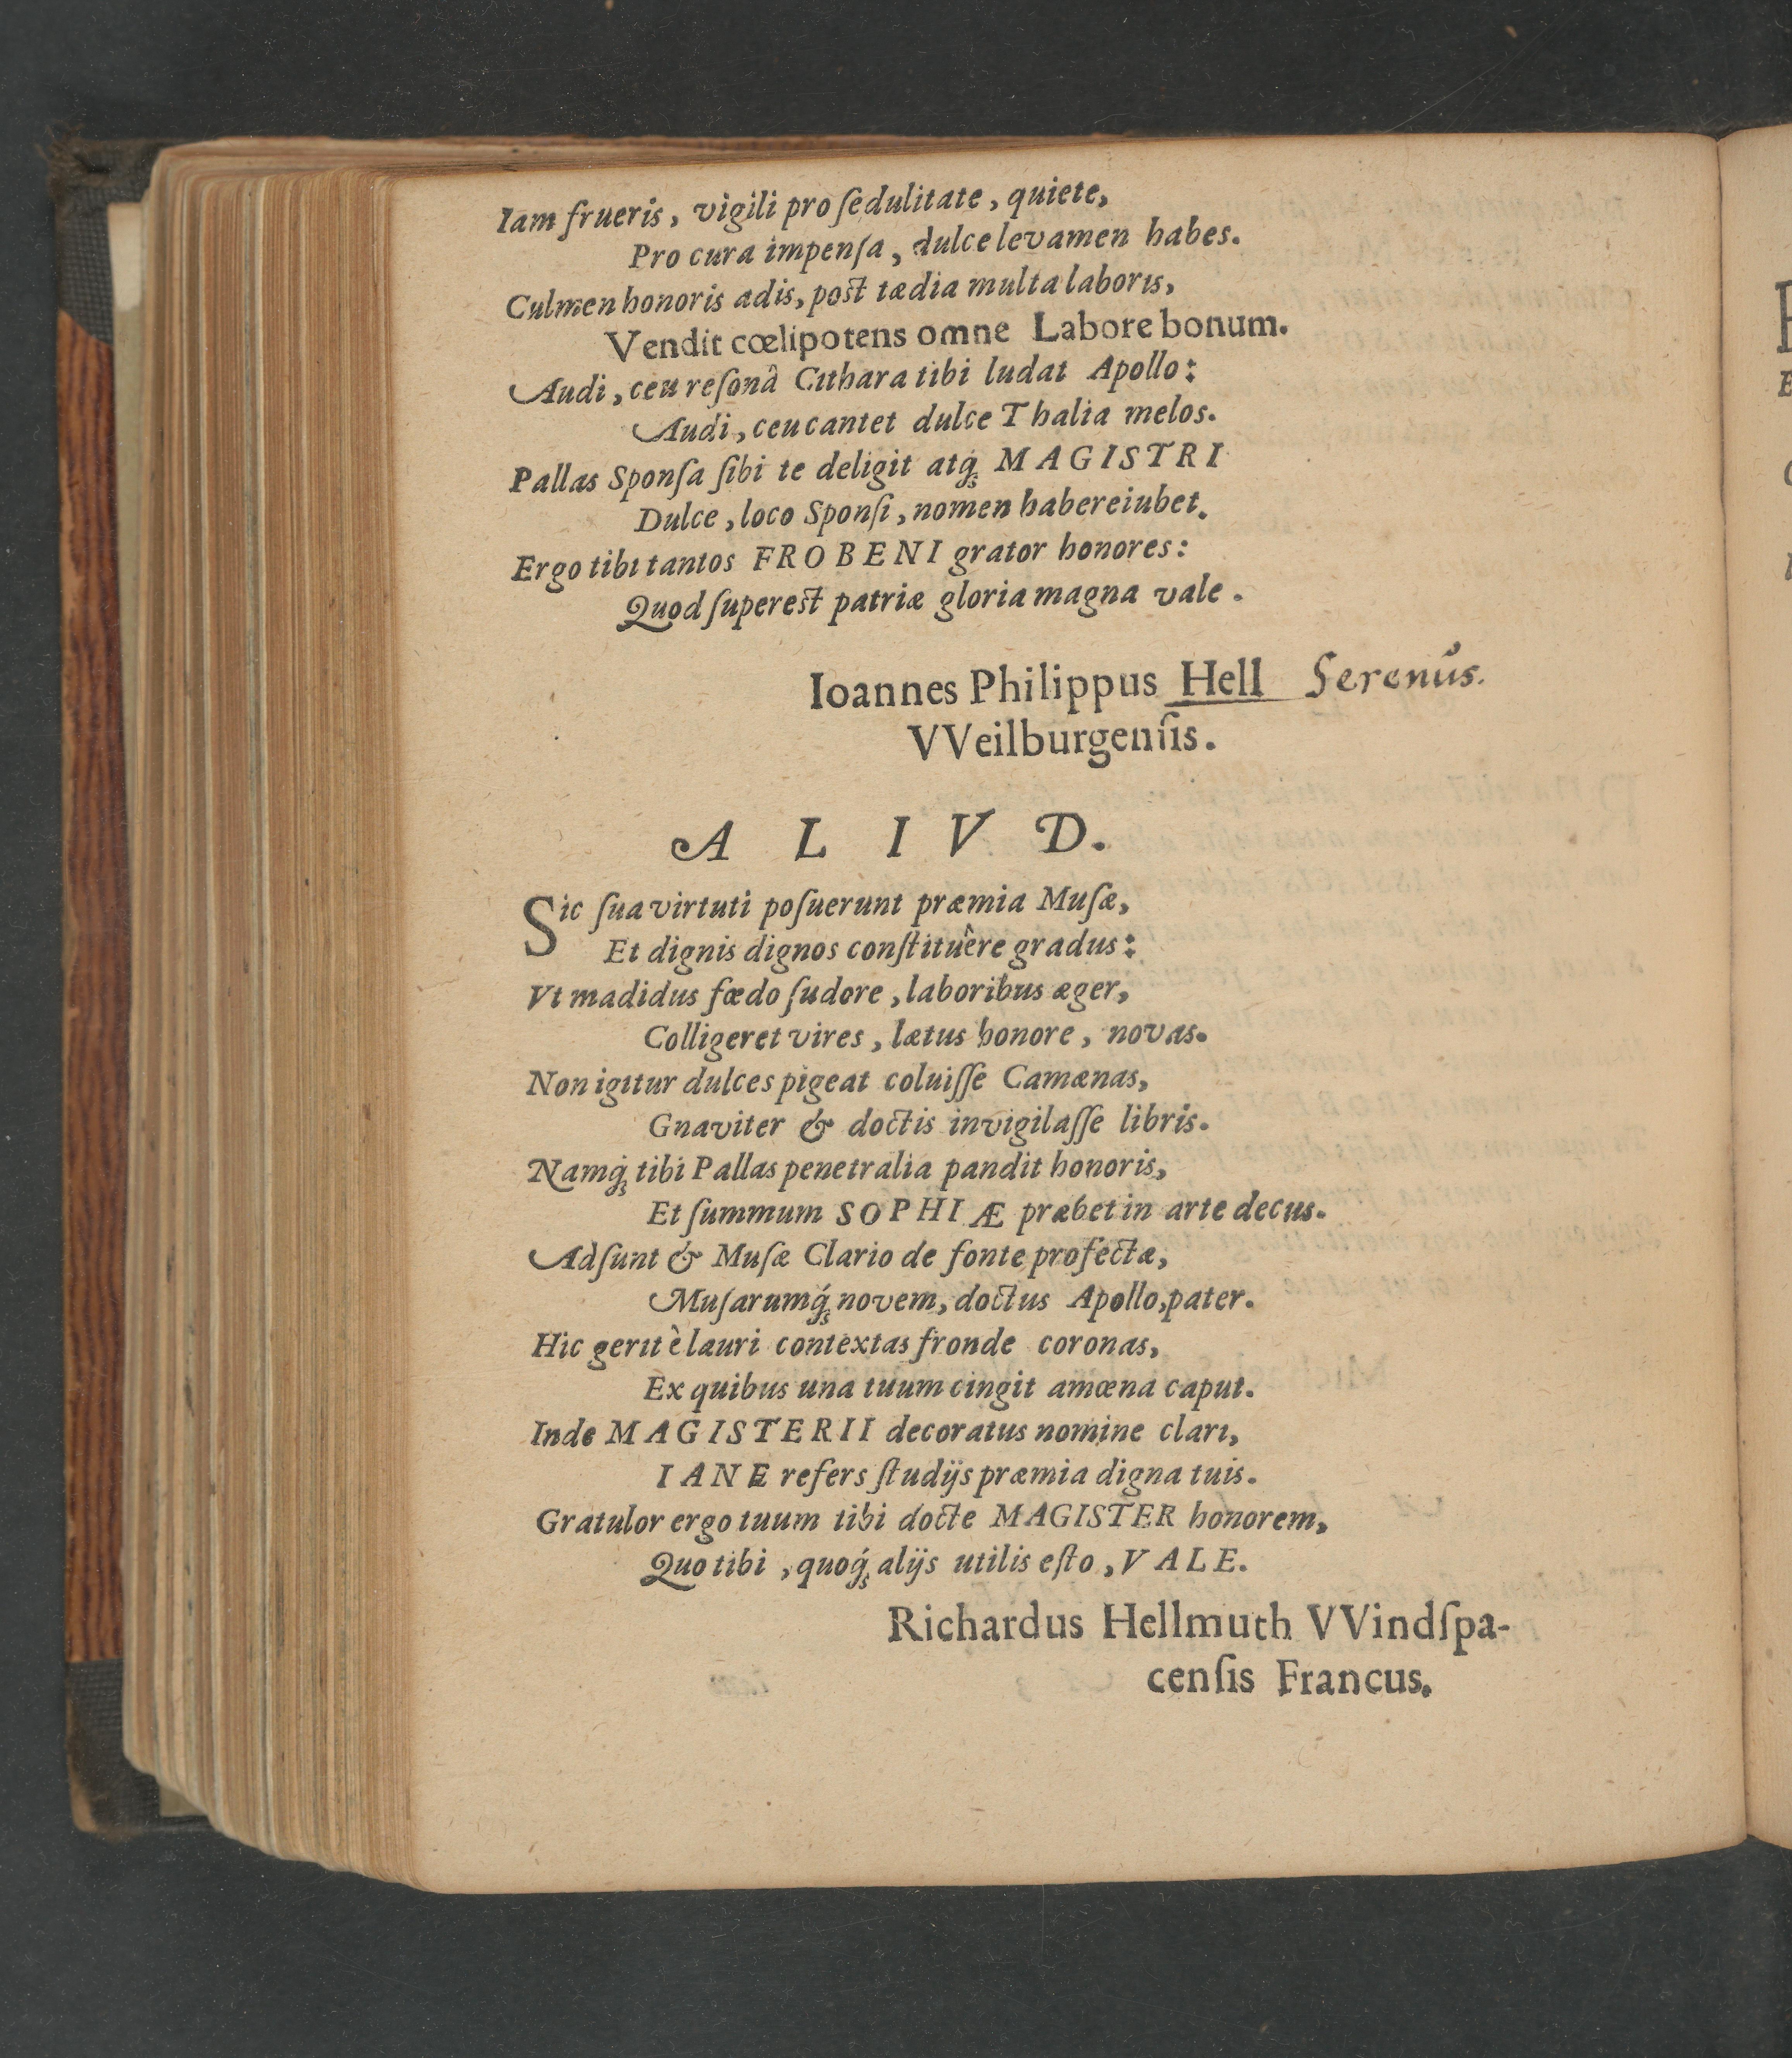 Iam frueris, vigili pro ſedulitate, quiete,
Pro cura impenſa, dulce levamen habes.
Culmen honoris adis, poſt tædia multa laboris,
Vendit cœlipotens omne Labore bonum.
Audi, ceu reſonâ Cithara tibi ludat Apollo:
Audi, ceu cantet dulce Thalia melos.
Pallas Sponſa ſibi te deligit atq́; MAGISTRI
Dulce, loco Sponſi, nomen habere iubet.
Ergo tibi tantos FROBENI grator honores:
Quod ſupereſt patriæ gloria magna vale.
Ioannes Philippus Hell Serenus.
VVeilburgenſis.
ALIVD.
Sic ſua virtuti poſuerunt præmia Muſæ,
Et dignis dignos conſtituêre gradus:
Vt madidus fœdo ſudore, laboribus æger,
Colligeret vires, lætus honore, novas.
Non igitur dulces pigeat coluiſſe Camœnas,
Gnaviter & doctis invigilaſſe libris.
Namq́; tibi Pallas penetralia pandit honoris,
Et ſummum SOPHIÆ præbet in arte decus.
Adſunt & Muſæ Clario de fonte profectæ,
Muſarumq́; novem, doctus Apollo, pater.
Hic gerit è lauri contextas fronde coronas,
Ex quibus una tuum cingit amœna caput.
Inde MAGISTERII decoratus nomine clari,
IANE refers ſtudijs præmia digna tuis.
Gratulor ergo tuum tibi docte MAGISTER honorem,
Quo tibi, quoq́; alijs utilis eſto, VALE.
Richardus Hellmuth VVindſpa-
cenſis Francus.